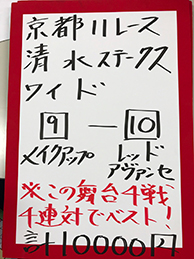 京都11レース
清水ステークス
ワイド
9 ― 10
メイクアップ レッド
アヴァンセ
※この舞台4戦
4連対でベスト!
計10000円